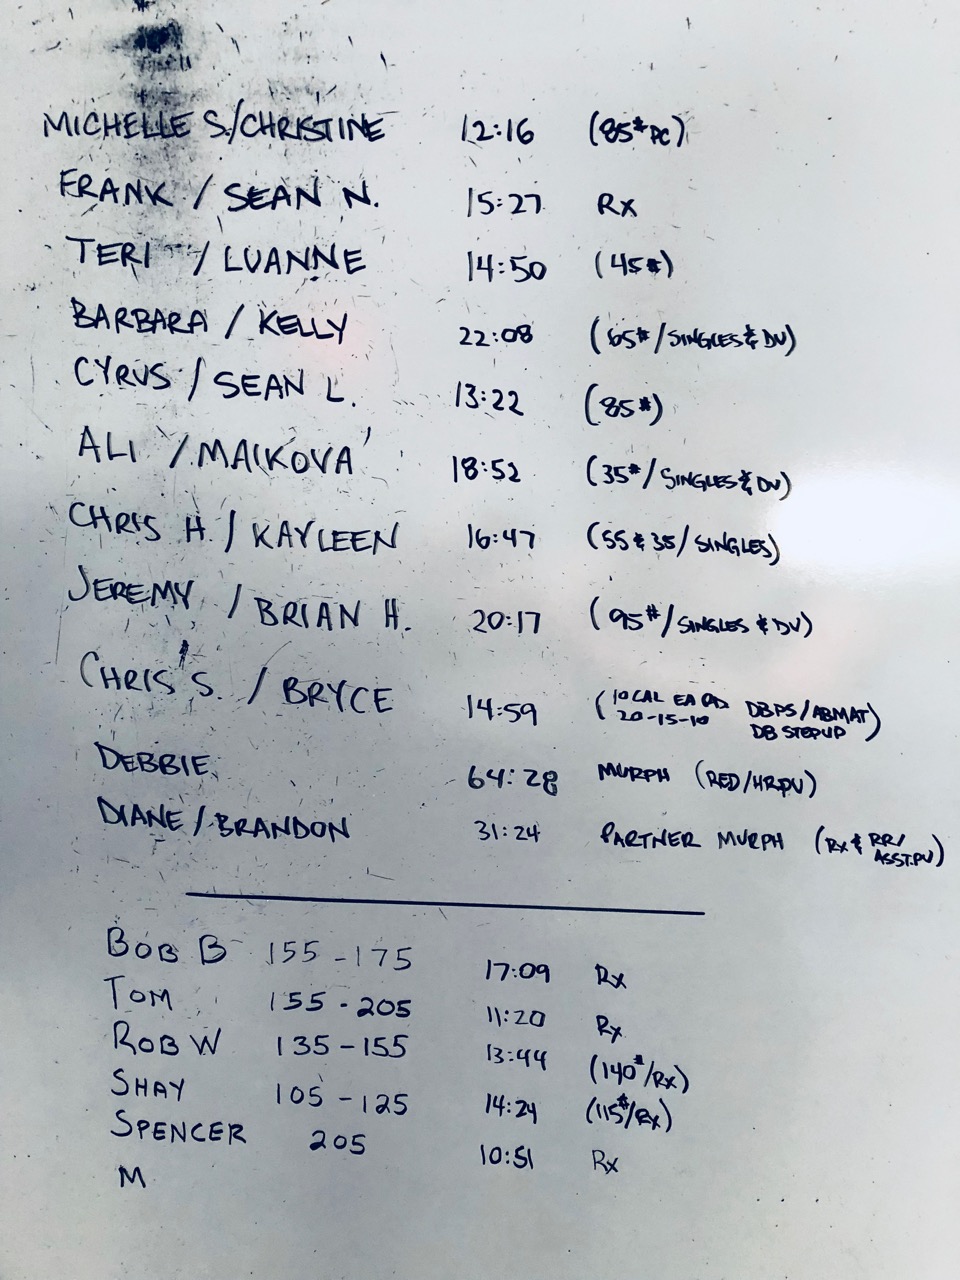 MICHELLE S./CHRISTINE 12:16 (85# PC)
FRANK / SEAN N. 15:27 Rx
TERI / LUANNE 14:50 (45#)
BARBARA / KELLY 22:08 (65#/SINGLES & DU)
CYRUS / SEAN L. 13:22 (85#)
ALI / MAIKOVA 18:52 (35#/SINGLES & DU)
CHRIS H. / KAYLEEN 16:47 (55 & 35/SINGLES)
JEREMY / BRIAN H. 20:17 (95#/SINGLES & DU)
CHRIS S. / BRYCE 14:59 (10 CAL EA RD DBPS/ABMAT)
20-15-10 DB STEPUP
DEBBIE 64:28 MURPH (RED/HRPU)
DIANE / BRANDON 31:24 PARTNER MURPH (Rx & RR/
ASST.PU)
BOB B 155-175 17:09 Rx
TOM 155-205 11:20 Rx
ROB W 135-155 13:44 (140#/Rx)
SHAY 105-125 14:24 (115#/Rx)
SPENCER 205 10:51 Rx
M